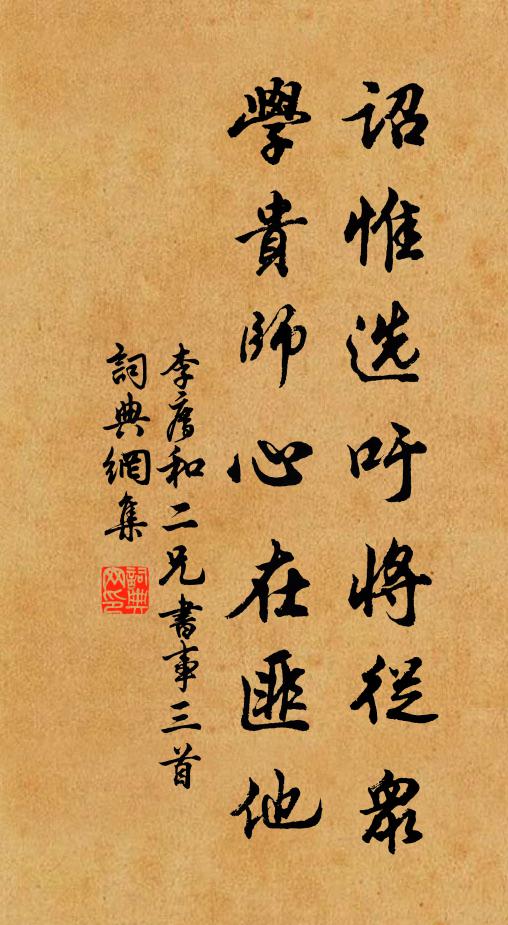 詔惟选吁將從眾
學貴師心在匪他
李廌和二兄書事三首
詞典網集
詞典网印